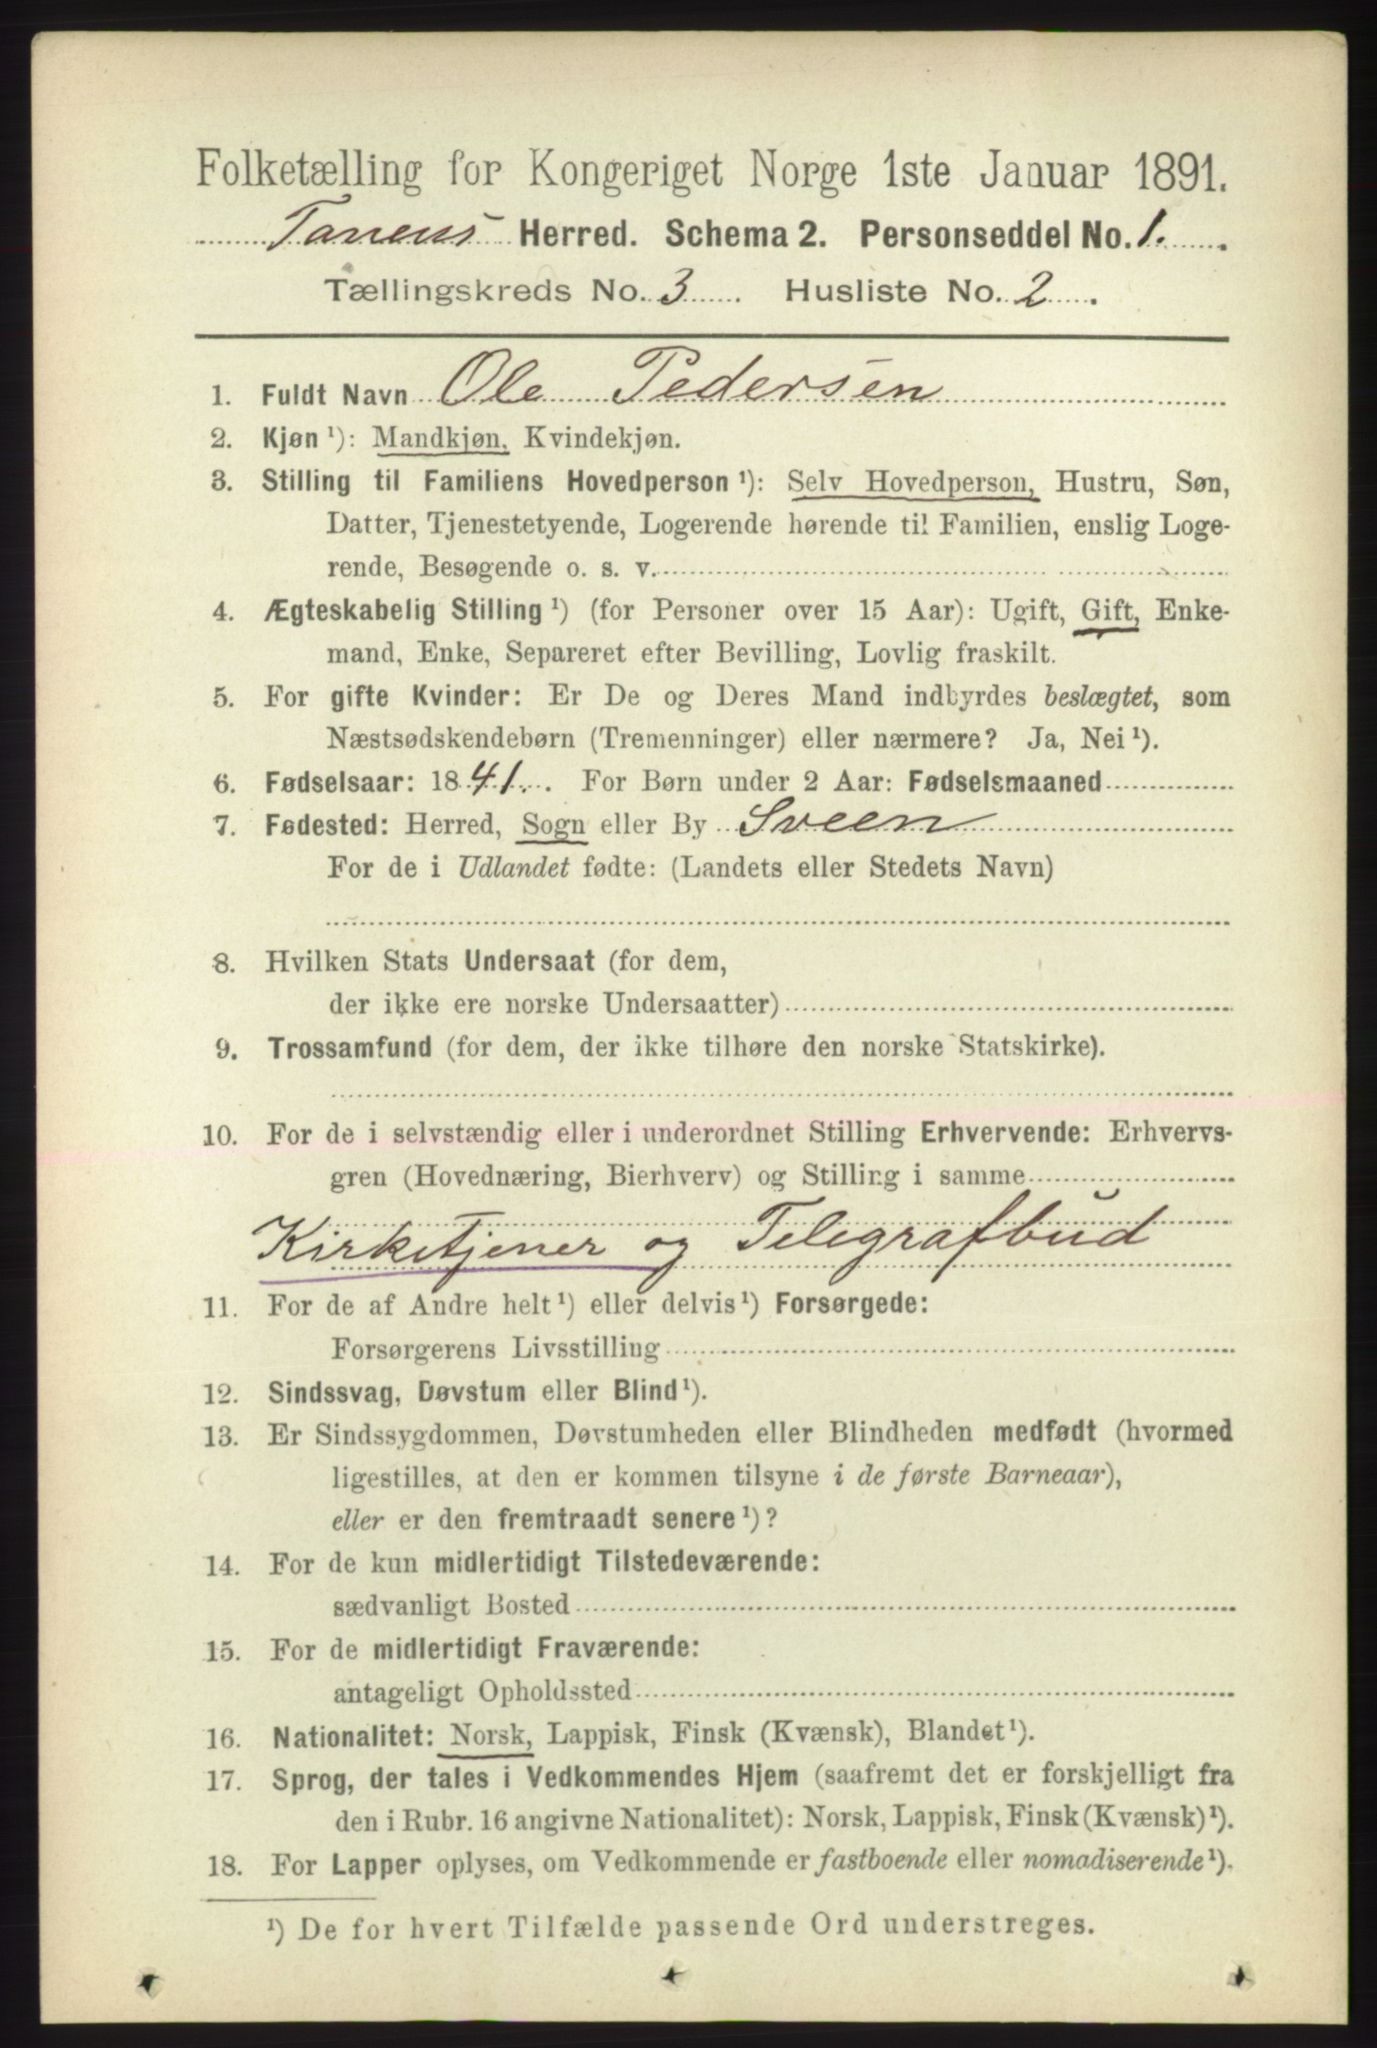 Folketælling for Kongeriget Norge 1ste Januar 1891.
Tanens Herred. Schema 2. Personseddel No. 1.
Tællingskreds No. 3. Husliste No. 2.
1. Fuldt Navn Ole Pedersen
2. Kjøn ¹): Mandkjøn, Kvindekjøn.
3. Stilling til Familiens Hovedperson ¹): Selv Hovedperson, Hustru, Søn,
Datter, Tjenestetyende, Logerende hørende til Familien, enslig Loge-
rende, Besøgende o. s. v.
4. Ægteskabelig Stilling ¹) (for Personer over 15 Aar): Ugift, Gift, Enke-
mand, Enke, Separeret efter Bevilling, Lovlig fraskilt.
5. For gifte Kvinder: Er De og Deres Mand indbyrdes beslægtet, som
Næstsødskendebørn (Tremenninger) eller nærmere? Ja, Nei ¹).
6. Fødselsaar: 1841. For Børn under 2 Aar: Fødselsmaaned
7. Fødested: Herred, Sogn eller By Sveen
For de i Udlandet fødte: (Landets eller Stedets Navn)
8. Hvilken Stats Undersaat (for dem,
der ikke ere norske Undersaatter)
9. Trossamfund (for dem, der ikke tilhøre den norske Statskirke).
10. For de i selvstændig eller i underordnet Stilling Erhvervende: Erhvervs-
gren (Hovednæring, Bierhverv) og Stilling i samme
Kirketjener og Telegrafbud
11. For de af Andre helt ¹) eller delvis ¹) Forsørgede:
Forsørgerens Livsstilling
12. Sindssvag, Døvstum eller Blind ¹).
13. Er Sindssygdommen, Døvstumheden eller Blindheden medfødt (hvormed
ligestilles, at den er kommen tilsyne i de første Barneaar),
eller er den fremtraadt senere ¹)?
14. For de kun midlertidigt Tilstedeværende:
sædvanligt Bosted
15. For de midlertidigt Fraværende:
antageligt Opholdssted
16. Nationalitet: Norsk, Lappisk, Finsk (Kvænsk), Blandet ¹).
17. Sprog, der tales i Vedkommendes Hjem (saafremt det er forskjelligt fra
den i Rubr. 16 angivne Nationalitet): Norsk, Lappisk, Finsk (Kvænsk) ¹).
18. For Lapper oplyses, om Vedkommende er fastboende eller nomadiserende ¹).
¹) De for hvert Tilfælde passende Ord understreges.